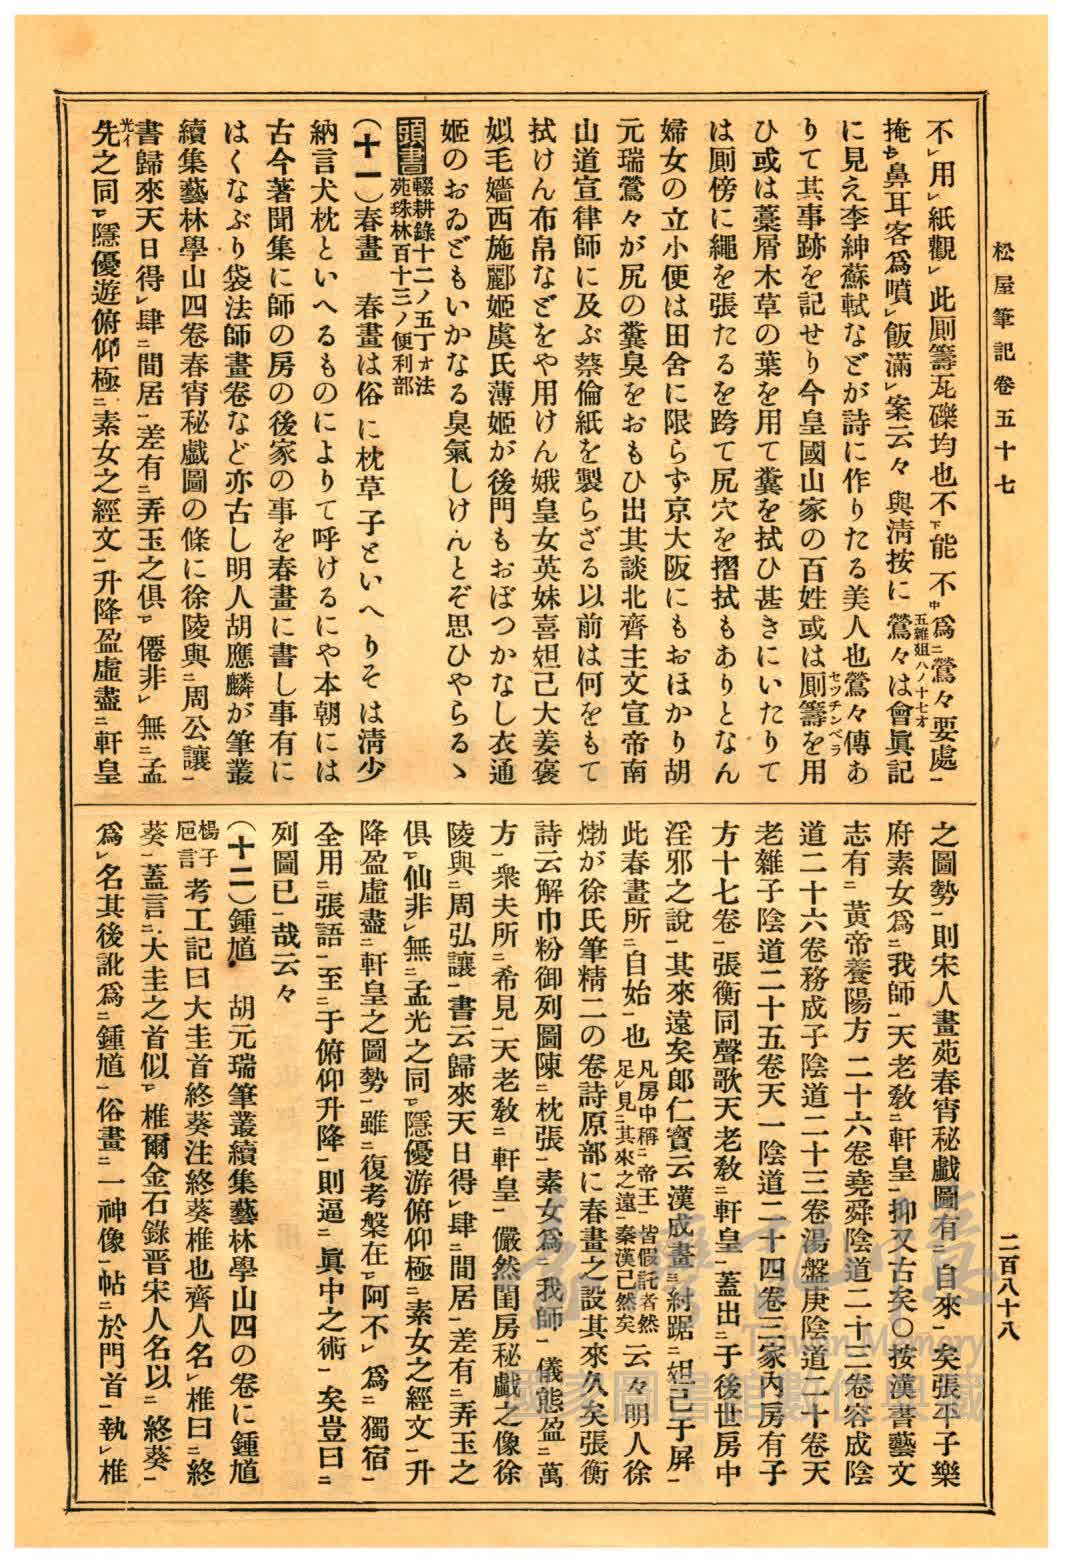 松屋筆記卷五十七
二百八十八
不レ用レ紙觀レ此厠籌瓦礫均也不下能不中爲二鶯々要處一
掩レ鼻耳客爲噴レ飯滿レ案云々 與淸按に五雜俎八ノ十七オ鶯々は會眞記
に見え李紳蘇軾などが詩に作りたる美人也鶯々傳あ
りて其事跡を記せり今皇國山家の百姓或は厠籌セツチンベラを用
ひ或は藁屑木草の葉を用て糞を拭ひ甚きにいたりて
は厠傍に繩を張たるを跨て尻穴を摺拭もありとなん
婦女の立小便は田舍に限らず京大阪にもおほかり胡
元瑞鶯々が尻の糞臭をおもひ出其談北齊主文宣帝南
山道宣律師に及ぶ蔡倫紙を製らざる以前は何をもて
拭けん布帛などをや用けん娥皇女英妹喜妲己大姜褒
姒毛嬙西施酈姬虞氏薄姬が後門もおぼつかなし衣通
姬のおゐどもいかなる臭氣しけんとぞ思ひやらるゝ
頭書 輟耕錄十二ノ五丁オ法
苑珠林百十三ノ便利部
(十一)春畫 春畫は俗に枕草子といへりそは淸少
納言犬枕といへるものによりて呼けるにや本朝には
古今著聞集に師の房の後家の事を春畫に書し事有に
はくなぶり袋法師畫卷など亦古し明人胡應麟が筆叢
續集藝林學山四卷春宵秘戲圖の條に徐陵與二周公讓一
書歸來天日得レ肆二間居一差有二弄玉之俱一僊非レ無二孟
光イ
先之同一隱優遊俯仰極二素女之經文一升降盈虛盡二軒皇
之圖勢一則宋人畫苑春宵秘戲圖有二自來一矣張平子樂
府素女爲二我師一天老敎二軒皇一抑又古矣〇按漢書藝文
志有二黃帝養陽方二十六卷堯舜陰道二十三卷容成陰
道二十六卷務成子陰道二十三卷湯盤庚陰道二十卷天
老雜子陰道二十五卷天一陰道二十四卷三家內房有子
方十七卷一張衡同聲歌天老敎二軒皇一蓋出二于後世房中
淫邪之說一其來遠矣郞仁寳云漢成畫三紂踞二妲己于屏一
此春畫所二自始一也凡房中稱二帝王一皆假託者然
足レ見二其來之遠一秦漢已然矣云々明人徐
𤊹が徐氏筆精二の卷詩原部に春畫之設其來久矣張衡
詩云解巾粉御列圖陳二枕張一素女爲二我師一儀態盈二萬
方一衆夫所二希見一天老敎二軒皇一儼然閨房秘戲之像徐
陵與二周弘讓一書云歸來天日得レ肆二間居一差有二弄玉之
俱一仙非レ無二孟光之同一隱優游俯仰極二素女之經文一升
降盈虛盡二軒皇之圖勢一雖二復考槃在一阿不レ爲二獨宿一
全用二張語一至二于俯仰升降一則逼二眞中之術一矣豈曰二
列圖已一哉云々
(十二)鍾馗 胡元瑞筆叢續集藝林學山四の卷に鍾馗
楊子
巵言考工記曰大圭首終葵注終葵椎也齊人名レ椎曰二終
葵一蓋言二大圭之首似一レ椎爾金石錄晉宋人名以二終葵一
爲レ名其後訛爲二鍾馗一俗畫二一神像一帖二於門首一執レ椎
臺灣記憶
Taiwan Memory
國家圖書館數位典藏